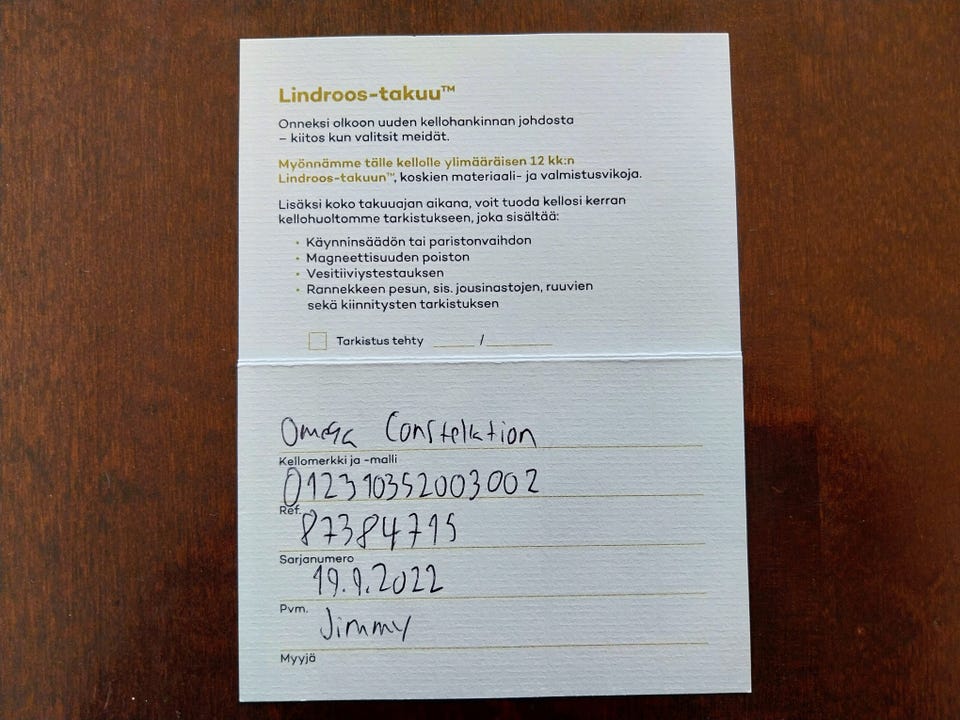 Lindroos-takuu™
Onneksi olkoon uuden kellohankinnan johdosta
– kiitos kun valitsit meidät.
Myönnämme tälle kellolle ylimääräisen 12 kk:n
Lindroos-takuun™, koskien materiaali- ja valmistusvikoja.
Lisäksi koko takuuajan aikana, voit tuoda kellosi kerran
kellohuoltomme tarkistukseen, joka sisältää:
• Käynninsäädön tai paristonvaihdon
• Magneettisuuden poiston
• Vesitiiviystestauksen
• Rannekkeen pesun, sis. jousinastojen, ruuvien
sekä kiinnitysten tarkistuksen
Tarkistus tehty ____ / ____
Omega Constelation
Kellomerkki ja -malli
012310352003002
Ref.
87384715
Sarjanumero
19.9.2022
Pvm.
Jimmy
Myyjä